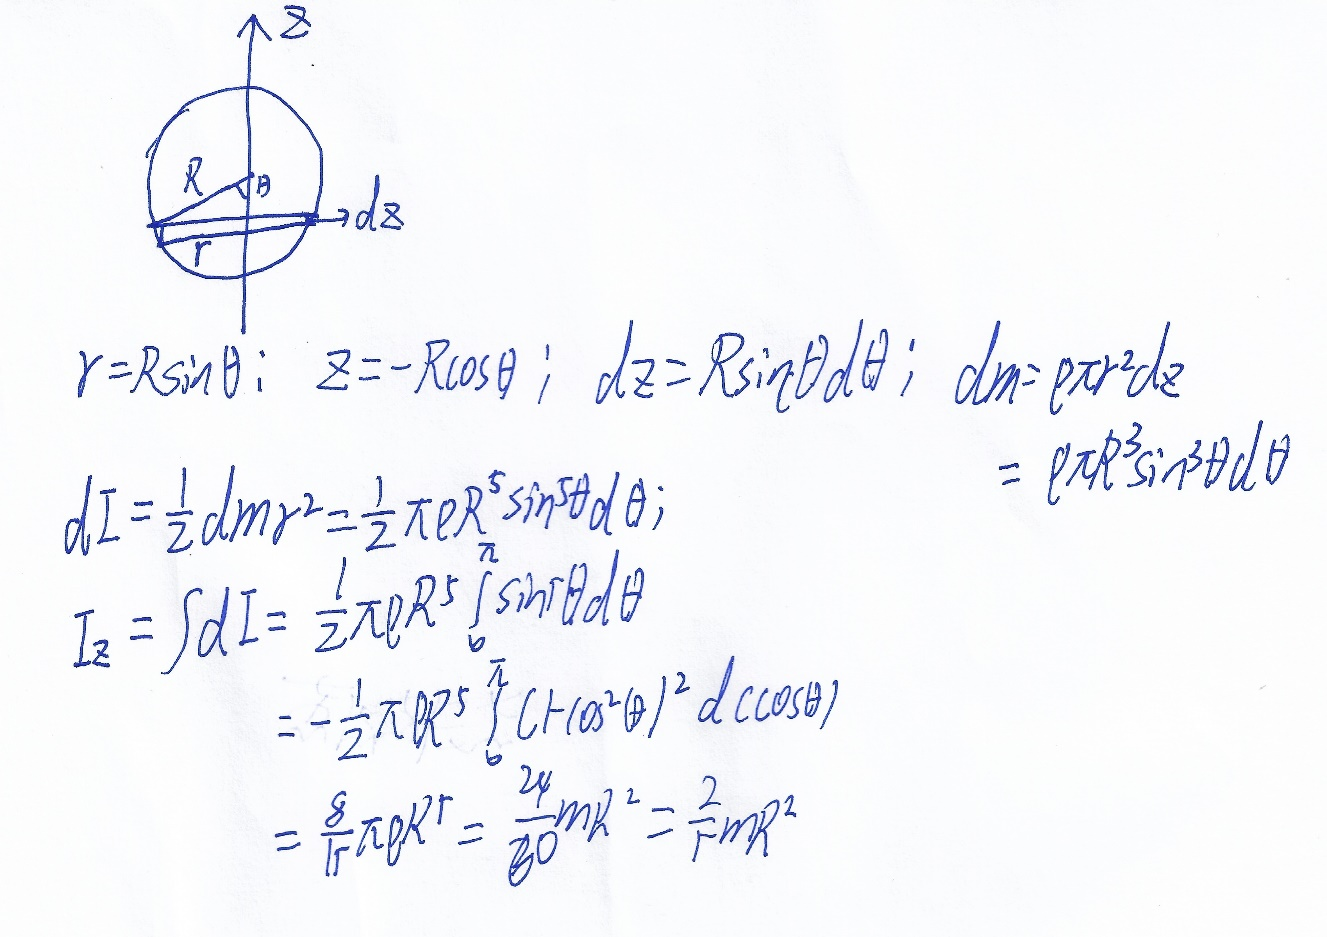 z
R θ
dz
r
r=Rsinθ; z=-Rcosθ; dz=Rsinθdθ; dm=ρπr²dz
=ρπR³sin³θdθ
dI=½dmr²=½πρR⁵sin⁵θdθ;
I_z=∫dI=½πρR⁵∫₀^π sin⁵θdθ
=-½πρR⁵∫₀^π(1-cos²θ)²d(cosθ)
=8/15πρR⁵=24/60mR²=2/5mR²